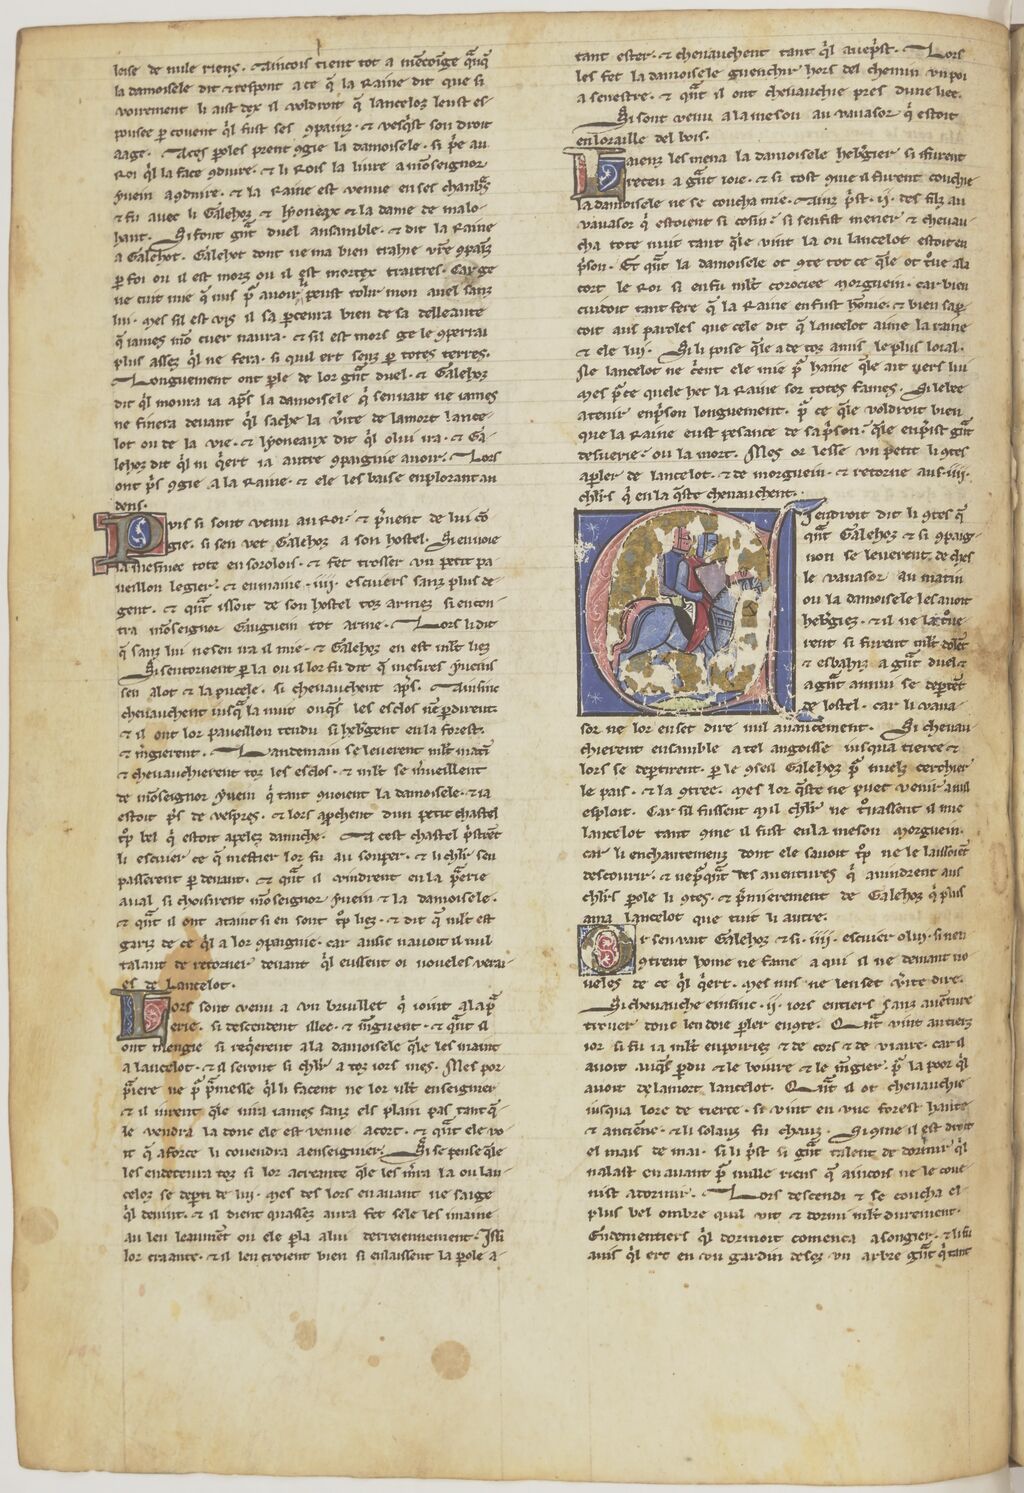 loise de nule riens. Aincois tient tot a mēcōige qāq̄
la damoisele dit & respont a ce q̄ la Raine dit que si
voirement li aist dex il voldroit q̄ lancelox leust es-
pousee p couent ql fust ses 9painz. & vesq̄st son droit
aage. Aces poles prent 9gie la damoisele. si p̄e au
Roi ql la face 9duire. & li Rois la liure a mōseignor
yuein a 9duire. & la Raine est venue en ses chanb̄s
& fu auec li Galehoz & lyoneax & la dame de malo-
haut. Si font gn̄t duel ansamble. & dit la Raine
a Galehot. Galehot dont ne ma bien trahie vr̄e 9painz
p foi ou il est morz ou il est mortex traitres. Car ge
ne cuit mie q̄ nus p̄ auoir peust tolir mon anel sanz
lui. Mes sil est vis il sa pceura bien de sa delleaute
q̄ iames mō cuer naura. & sil est mors ge le 9perrai
plus assez ql ne fera. si quil ert senz p totes terres.
Longuement ont ple de lor gn̄t duel. & Galehoz
dit ql moura ia ap̄s la damoisele q̄ sen vait ne iames
ne finera deuant ql sache la v̄ite de la mort lance-
lot ou de la vie. & lyoneaux dit ql o lui ira. & Ga-
lehoz dit ql ni q̄ert ia autre 9paignie auoir. Lors
ont p̄s 9gie a la Raine. & ele les baise en plorant an
dens.
Puis si sont venu au Roi. & p̄nent de lui cō
gie. si sen vet Galehoz a son hostel. Si enuoie
sa mesniee tote en sorolois. & fet trosser un petit pa-
ueillon legier. & en maine .iiii. escuiers sanz plus de
gent. & qn̄t issoit de son hostel toz armez si encon-
tra mōseignor Gauguein tot arme. Lors li dit
q̄ sanz lui ne sen ira il mie. & Galehoz en est ml't liez
Si sen tornent p la ou il lor fu dit q̄ mesires yueins
sen aloit & la pucele. si cheuauchent ap̄s. Ainsinc
cheuauchent iusq̄ la nuit onq̄s les esclos nē pdirent.
& il ont lor paueillon tendu si heb̄gent en la forest.
& m̄gierent. Landemain se leuerent ml't matī
& cheuauchierent toz les esclos. & ml't se m̄ueillent
de mōseignor yuein q̄ tant 9uoient la damoisele. & ia
estoit p̄s de vespres. & lors apchent dun petit chastel
tp̄ bel q̄ estoit apelez danuche. A cest chastel p̄strēt
li escuier ce q̄ mestier lor fu au souper. & li chl'r sen
passerent p deuant. & qn̄t il vindrent en la p̄erie
aual si choisirent mōseignor yuein & la damoisele.
& qn̄t il ont ataint si en sont tp̄ liez. & dit q̄ ml't est
gariz de ce ql a lor 9paignie. car ansic nauoit il nul
talant de retorner deuant ql eussent oi noueles verai-
es de Lancelot.
Lors sont venu a un bruillet q̄ ioint a la p̄
erie. si descendent illec. & m̄guent. & qn̄t il
ont mengie si req̄erent a la damoisele q̄le les maint
a lancelot. & il seront si chl'r a toz iors mes. Mes por
p̄iere ne p̄ p̄messe ql li facent ne lor vlt enseignier
& il iurent q̄le nira iames sanz els plain pas tant q̄-
le vendra la donc ele est venue a cort. & qn̄t ele vo-
it q̄ a force li couendra a enseignier. Si se pense q̄le
les endetenra toz si lor acreante q̄le les m̄ra la ou lan-
celoz se depti de lui. Mes des lors en auant ne saige
ql deuint. & il dient q̄ assez aura fet sele les i maine
au leu leaumēt ou ele pla a lui derreiennement. Issi
lor craante. & il len croient bien si en laissent la pole a-
tant ester. & cheuauchent tant ql auesp̄st. Lors
les fet la damoisele guenchir hors del chemin un poi
a senestre. & qn̄t il ont cheuauchie pres dune liee.
Si sont venu a la meson au vauasor q̄ estoit
en loraille del bois.
Laienz les mena la damoisele heb̄gier si furent
receu a gn̄t ioie. & si tost 9me il furent couchie
la damoisele ne se coucha mie. Ainz p̄st .ii. des filz au
vauasor q̄ estoient si cosin. si sen fist mener & cheuau-
cha tote nuit tant q̄le vint la ou lancelot estoit en
p̄son. Et qn̄t la damoisele ot 9te tot ce q̄le ot t̄ue a la
cort le Roi si en fu ml't corociee morguein. car bien
cuidoit tant fere q̄ la Raine en fust hōnie. & bien sap̄-
coit aus paroles que cele dit q̄ lancelot aime la raine
& ele lui. Si li poise q̄le a de toz amis le plus loial.
Ne lancelot ne c̄ent ele mie p̄ haine q̄le ait vers lui
mes p̄ ce quele het la Raine sor totes fames. Si le bee
a tenir en p̄son longuement. p̄ ce q̄le voldroit bien
que la Raine eust pesance de sa p̄son. q̄le en p̄ist gn̄t
desuerie. ou la mort. Mes or lesse un petit li 9tes
a pler de lancelot. & de morguein. & retorne aus .iiii.
chl'rs q̄ en la q̄ste cheuauchent.
Ci endroit dit li 9tes q̄
qn̄t Galehoz & si 9paig-
non se leuerent. de ches
le vauasor au matin
ou la damoisele les auoit
heb̄giez. & il ne la t̄oue-
rent si furent ml't dolēt
& esbahiz a gn̄t duel &
a gn̄t annui se deptēt
de lostel. car li vaua-
sor ne lor en set dire nul auancement. Si cheuau-
chierent ensamble a tel angoisse iusqua tierce &
lors se deptirent. p le 9seil Galehoz p̄ mielz cerchier
le pais. & la 9tree. Mes lor q̄ste ne puet venir a nul
esploit. Car sil fussent mil chl'r ne t̄uassent il mie
lancelot tant 9me il fust en la meson morguein.
car li enchantemenz dont ele sauoit tp̄ ne le laissoiēt
descourir. & nep̄q̄nt des auentures q̄ auindrent aus
chl'rs pole li 9tes. & p̄mierement de Galehoz q̄ plus
ama lancelot que tuit li autre.
Or sen vait Galehoz & si .iiii. escuier o lui. si nen
9trent home ne fame a qui il ne demant no
ueles de ce ql q̄ert. Mes nus ne len set v̄ite dire.
Si cheuauche einsinc .ii. iors entiers sanz auēture
trouer donc len doie pler en 9te. Qn̄t vint au tierz
ior si fu ia ml't enpoiriez & de cors & de viaire. car il
auoit auq̄s pdu & le boiure & le m̄gier. p̄ la poor ql
auoit de la mort lancelot. Qn̄t il ot cheuauchie
iusqua lore de tierce. si vint en une forest haute
& anciēne. & li solauz fu chauz. Si 9me il est droit
el mais de mai. si li p̄st si gn̄t talent de dormir ql
nalast en auant p̄ nulle riens q̄ aincois ne le coue
nist a dormir. Lors descendi & se coucha el
plus bel ombre quil vit & dormi ml't durement.
Endementiers ql dormoit comenca a songier. & li fu
auis ql ert en un gardin desoz un arbre gn̄t q̄ tant